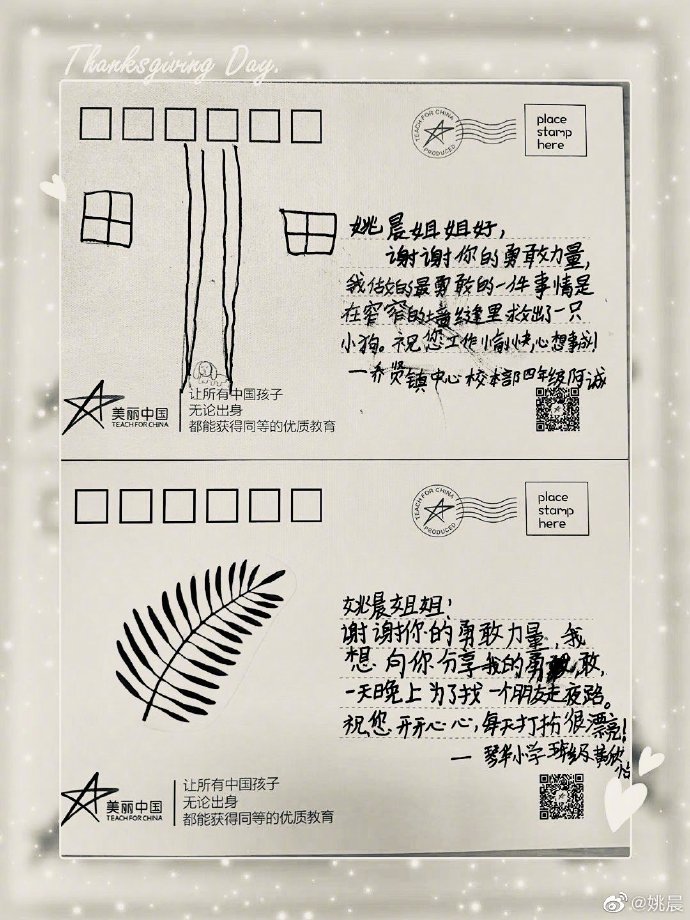 Thanksgiving Day.
TEACH FOR CHINA
PRODUCED
place
stamp
here
姚晨姐姐好，
谢谢你的勇敢力量，
我做的最勇敢的一件事情是
在窄窄的墙缝里救出了一只
小狗。祝您工作愉快，心想事成！
—乔贤镇中心校本部四年级阿诚
美丽中国
TEACH FOR CHINA
让所有中国孩子
无论出身
都能获得同等的优质教育
TEACH FOR CHINA
PRODUCED
place
stamp
here
姚晨姐姐：
谢谢你的勇敢力量，我
想向你分享我的勇敢，
一天晚上为了找一个朋友走夜路。
祝您开开心心，每天打扮很漂亮！
—琴华小学 黄欣怡
美丽中国
TEACH FOR CHINA
让所有中国孩子
无论出身
都能获得同等的优质教育
@姚晨